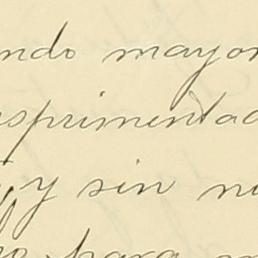 ndo mayor
sprimentad
y sin n
para